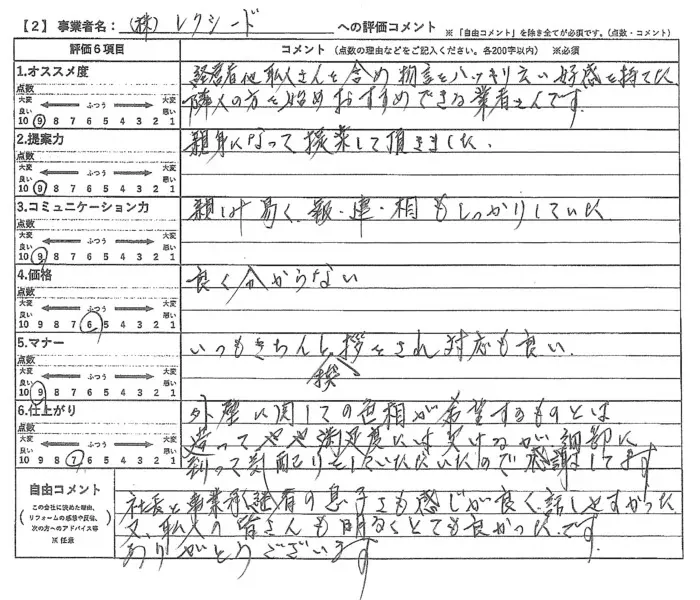 【2】事業者名： (株) レクシード への評価コメント ※「自由コメント」を除き全てが必須です。（点数・コメント）
評価6項目 コメント（点数の理由などをご記入ください。各200字以内） ※必須
1.オススメ度
点数
大変良い ← ふつう → 大変悪い
10 9 8 7 6 5 4 3 2 1
経営者他職人さんを含め物言もハッキリ云い好感を持てた
隣人の方を始めおすすめできる業者さんです。
2.提案力
点数
大変良い ← ふつう → 大変悪い
10 9 8 7 6 5 4 3 2 1
親身になって提案して頂きました.
3.コミュニケーション力
点数
大変良い ← ふつう → 大変悪い
10 9 8 7 6 5 4 3 2 1
親しみ易く、報・連・相もしっかりしていた
4.価格
点数
大変良い ← ふつう → 大変悪い
10 9 8 7 6 5 4 3 2 1
良く分からない
5.マナー
点数
大変良い ← ふつう → 大変悪い
10 9 8 7 6 5 4 3 2 1
いつもきちんと挨拶をされ対応も良い.
6.仕上がり
点数
大変良い ← ふつう → 大変悪い
10 9 8 7 6 5 4 3 2 1
外壁に関しての色相が希望するものとは
違ってやや満足度には欠けるが細部に
到って気配りをしていただいたので感謝してます
自由コメント
（この会社に決めた理由、
リフォームの感想や反省、
次の方へのアドバイス等）
※ 任意
社長と事業承継者の息子さも感じが良く、話しやすかった
又、職人の皆さんも明るくとても良かったです。
ありがとうございます